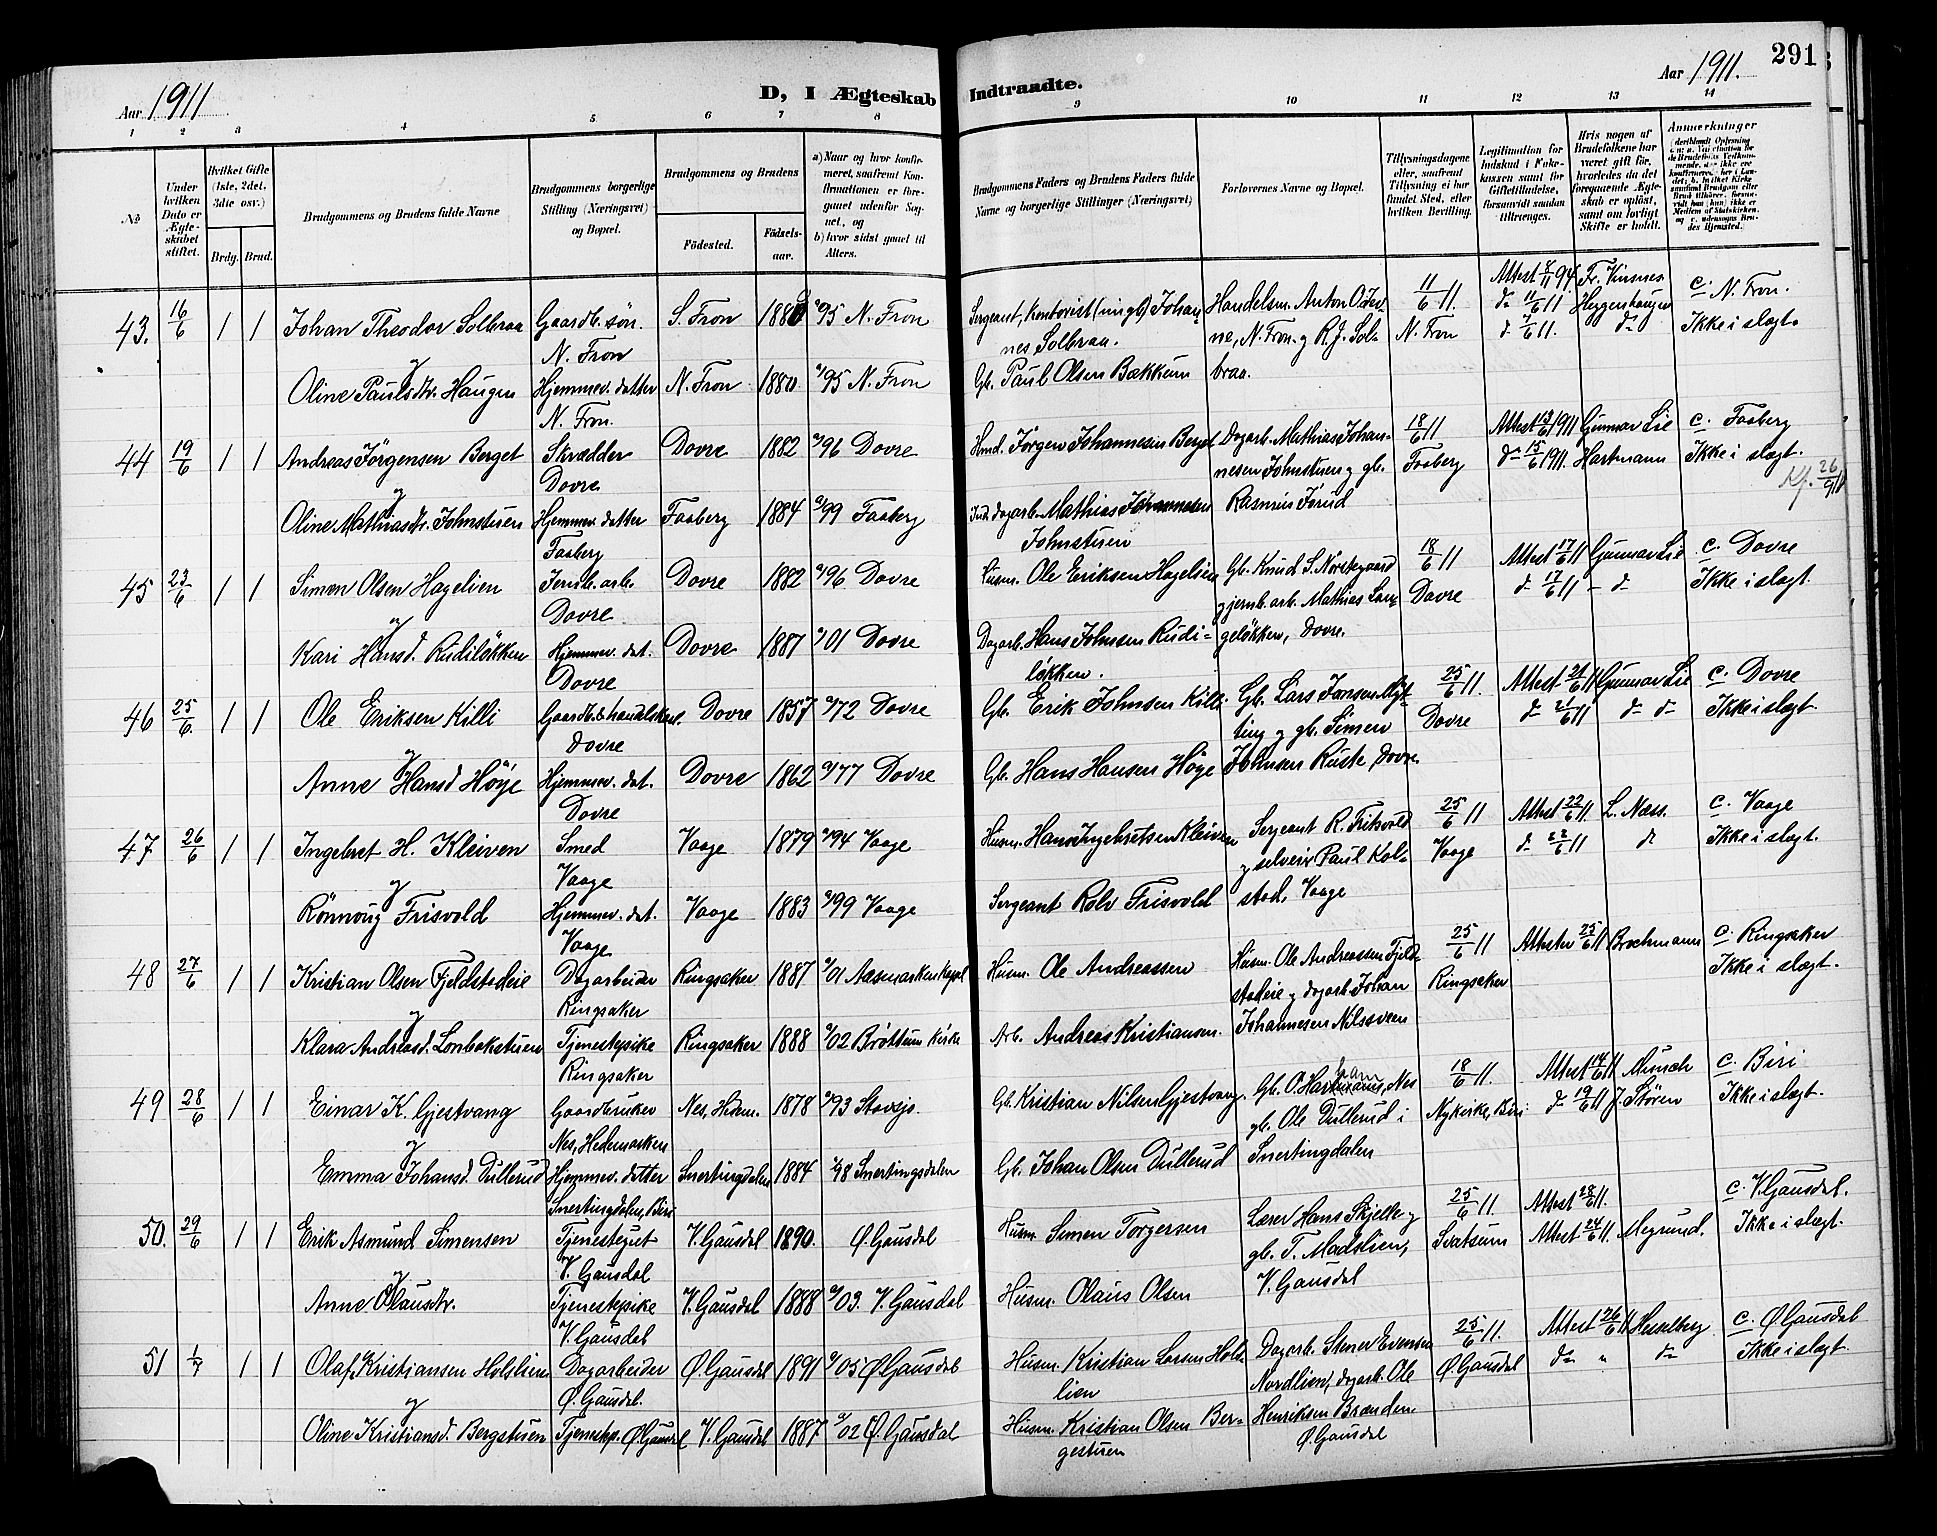 Aar 1911
D, I Ægteskab Indtraadte.
Aar 1911.
291
1 2 3 4 5 6 7 8 9 10 11 12 13 14
No
Under hvilken Dato er Ægteskabet stiftet.
Hvilket Gifte (1ste, 2det, 3die osv.)
Brdg. Brud.
Brudgommens og Brudens fulde Navne
Brudgommens borgerlige Stilling (Næringsvei) og Bopæl.
Brudgommens og Brudens
Fødested.
Fødselsaar.
a) Naar og hvor konfirmeret, saafremt Konfirmationen er foregaaet udenfor Sognet, og
b) hvor sidst gaaet til Alters.
Brudgommens Faders og Brudens Faders fulde Navne og borgerlige Stillinger (Næringsvei)
Forlovernes Navne og Bopæl.
Tillysningsdagene eller, saafremt Tillysning ei har fundet Sted, efter hvilken Bevilling.
Legitimation for Indskud i Enkekassen samt for Giftetilladelse, forsaavidt saadan tiltrænges.
Hvis nogen af Brudefolkene har været gift før, hvorledes da det foregaaende Ægteskab er opløst, samt om lovligt Skifte er holdt.
Anmerkninger
43. 16/6 1 1 Johan Theodor Solbraa Gaardb. søn. N. Fron S. Fron 188 95 N. Fron Sergeant, Johannes Solbraa. Handelsm. Anton O. ne, N. Fron. y R. J. Solbraa. 11/6 11. N. Fron Attest d° 11/6 11 d° 7/6 11. Fr. d° c. N. Fron. Ikke i slægt.
y
Oline Paulsdtr. Haugen Hjemmev. datter N. Fron. N. Fron 1880. 95 N. Fron Gb. Paul Olsen Bækkum
44 19/6 1 1 Andreas Jørgensen Berget Skrædder Dovre Dovre 1882 96 Dovre Hmd. Jørgen Johannesen Berget Dagarb. Mathias Johannesen Johnstuen y gb. Rasmus Jørud 18/6 11 Faaberg Attest 1911 d° 15/6 1911. Gunnar Lie Hartmann c. Faaberg Ikke i slægt. Kf. 26/9 11
y
Oline Mathiasdtr. Johnstuen Hjemmev. datter Faaberg Faaberg 1884 99 Faaberg Ind. dagarb. Mathias Johannesen Johnstuen
45 23/6 1 1 Simen Olsen Hagelien Jernb. arb. Dovre Dovre 1882 96 Dovre Husm. Ole Eriksen Hagelien Gb. Knud S. Norstegaard y jernb. arb. Mathias Langeløkken, Dovre. 18/6 11 Dovre Attest 17/6 11 d° 17/6 11 Gunnar Lie - d° c. Dovre Ikke i slægt.
y
Kari Hansd. Rudiløkken Hjemmev. dat. Dovre Dovre 1887 01 Dovre Dagarb. Hans Johnsen Rudiløkken.
46 25/6 1 1 Ole Eriksen Killi Gaardb. & handelskar. Dovre Dovre 1857 72 Dovre Gb. Erik Johnsen Killi Gb. Lars Jansen y gb. Simen Johnsen Ruste, Dovre. 25/6 11. Dovre Attest 21/6 11 d° 21/6 11 Gunnar Lie d° d° c. Dovre Ikke i slægt.
y
Anne Hansd Høye Hjemmev. dat. Dovre Dovre 1862 77 Dovre Gb. Hans Hansen Høye
47 26/6 1 1 Ingebret H. Kleiven Smed Vaage Vaage 1879 94 Vaage Husm. Hans Ingebretsen Kleiven Sergeant R. Frisvold y selveier Paul Kolstad, Vaage 25/6 11 Vaage Attest 22/6 11 d° 22/6 11 L. Næss. d° c. Vaage Ikke i slægt.
y
Rønnoug Frisvold Hjemmev. dat. Vaage Vaage 1883 99 Vaage Sergeant Rolv Frisvold
48 27/6 1 1 Kristian Olsen Fjeldstadeie Dagarbeider Ringsaker Ringsaker 1887 01 Aasmarken Kapel Husm. Ole Andreassen Husm. Ole Andreassen Fjeldstadeie y dagarb. Johan Johannesen Nilssveen 25/6 11 Ringsaker Attester 25/6 11 Brochmann c. Ringsaker Ikke i slægt.
y
Klara Andreasd. Lonbakstuen Tjenestepike Ringsaker Ringsaker 1888 02 Brøttum Kirke Arb. Andreas Kristiansen.
49 28/6 1 1 Einar K. Gjestvang Gaardbruker Nes, Hedemarken Nes, Hedm. 1878 93 Stavsjø Gb. Kristian Nilsen Gjestvang. Gb. O. Nes gb. Ole Dullerud i Snertingdalen 18/6 11. Nykirke, Biri Attest 14/6 11 d° 19/6 11 Munch J. Støren c. Biri Ikke i slægt.
y
Emma Johansd. Dullerud Hjemmev. datter Snertingdalen, Biri Snertingdalen 1884 98 Snertingsdalen Gb. Johan Olsen Dullerud
50. 29/6 1 1 Erik Asmund Simensen Tjenestegut V. Gausdal V. Gausdal 1890. Ø. Gausdal Husm. Simen Torgersen Lærer Hans Skjelle y gb. T. Madslien, V. Gausdal 25/6 11. Svatsum Attest 28/6 11. Attest 24/6 11. Mogrund. c. V. Gausdal. Ikke i slægt.
y
Anne Olausdtr. Tjenestepike V. Gausdal V. Gausdal 1888 03. V. Gausdal Husm. Olaus Olsen
51 1/7 1 1 Olaf Kristiansen Holslien Dagarbeider Ø. Gausdal. Ø. Gausdal 1891 05 Ø. Gausdal Husm. Kristian Larsen Holslien Dagarb. Stener Evensen Nordlien, dagarb. Ole Henriksen Brænden Ø. Gausdal 25/6 11. Ø. Gausdal Attest 26/6 11 d° " Hesselberg d° c. Ø. Gausdal Ikke i slægt.
y
Oline Kristiansd. Bergstuen Tjenestep. Ø. Gausdal V. Gausdal 1887 02 Ø. Gausdal Husm. Kristian Olsen Bergestuen